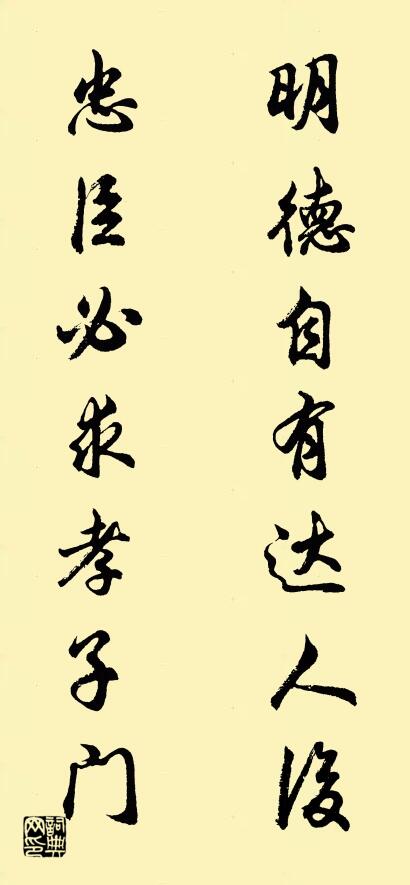 明德自有达人後
忠臣必求孝子门
詞典
网印